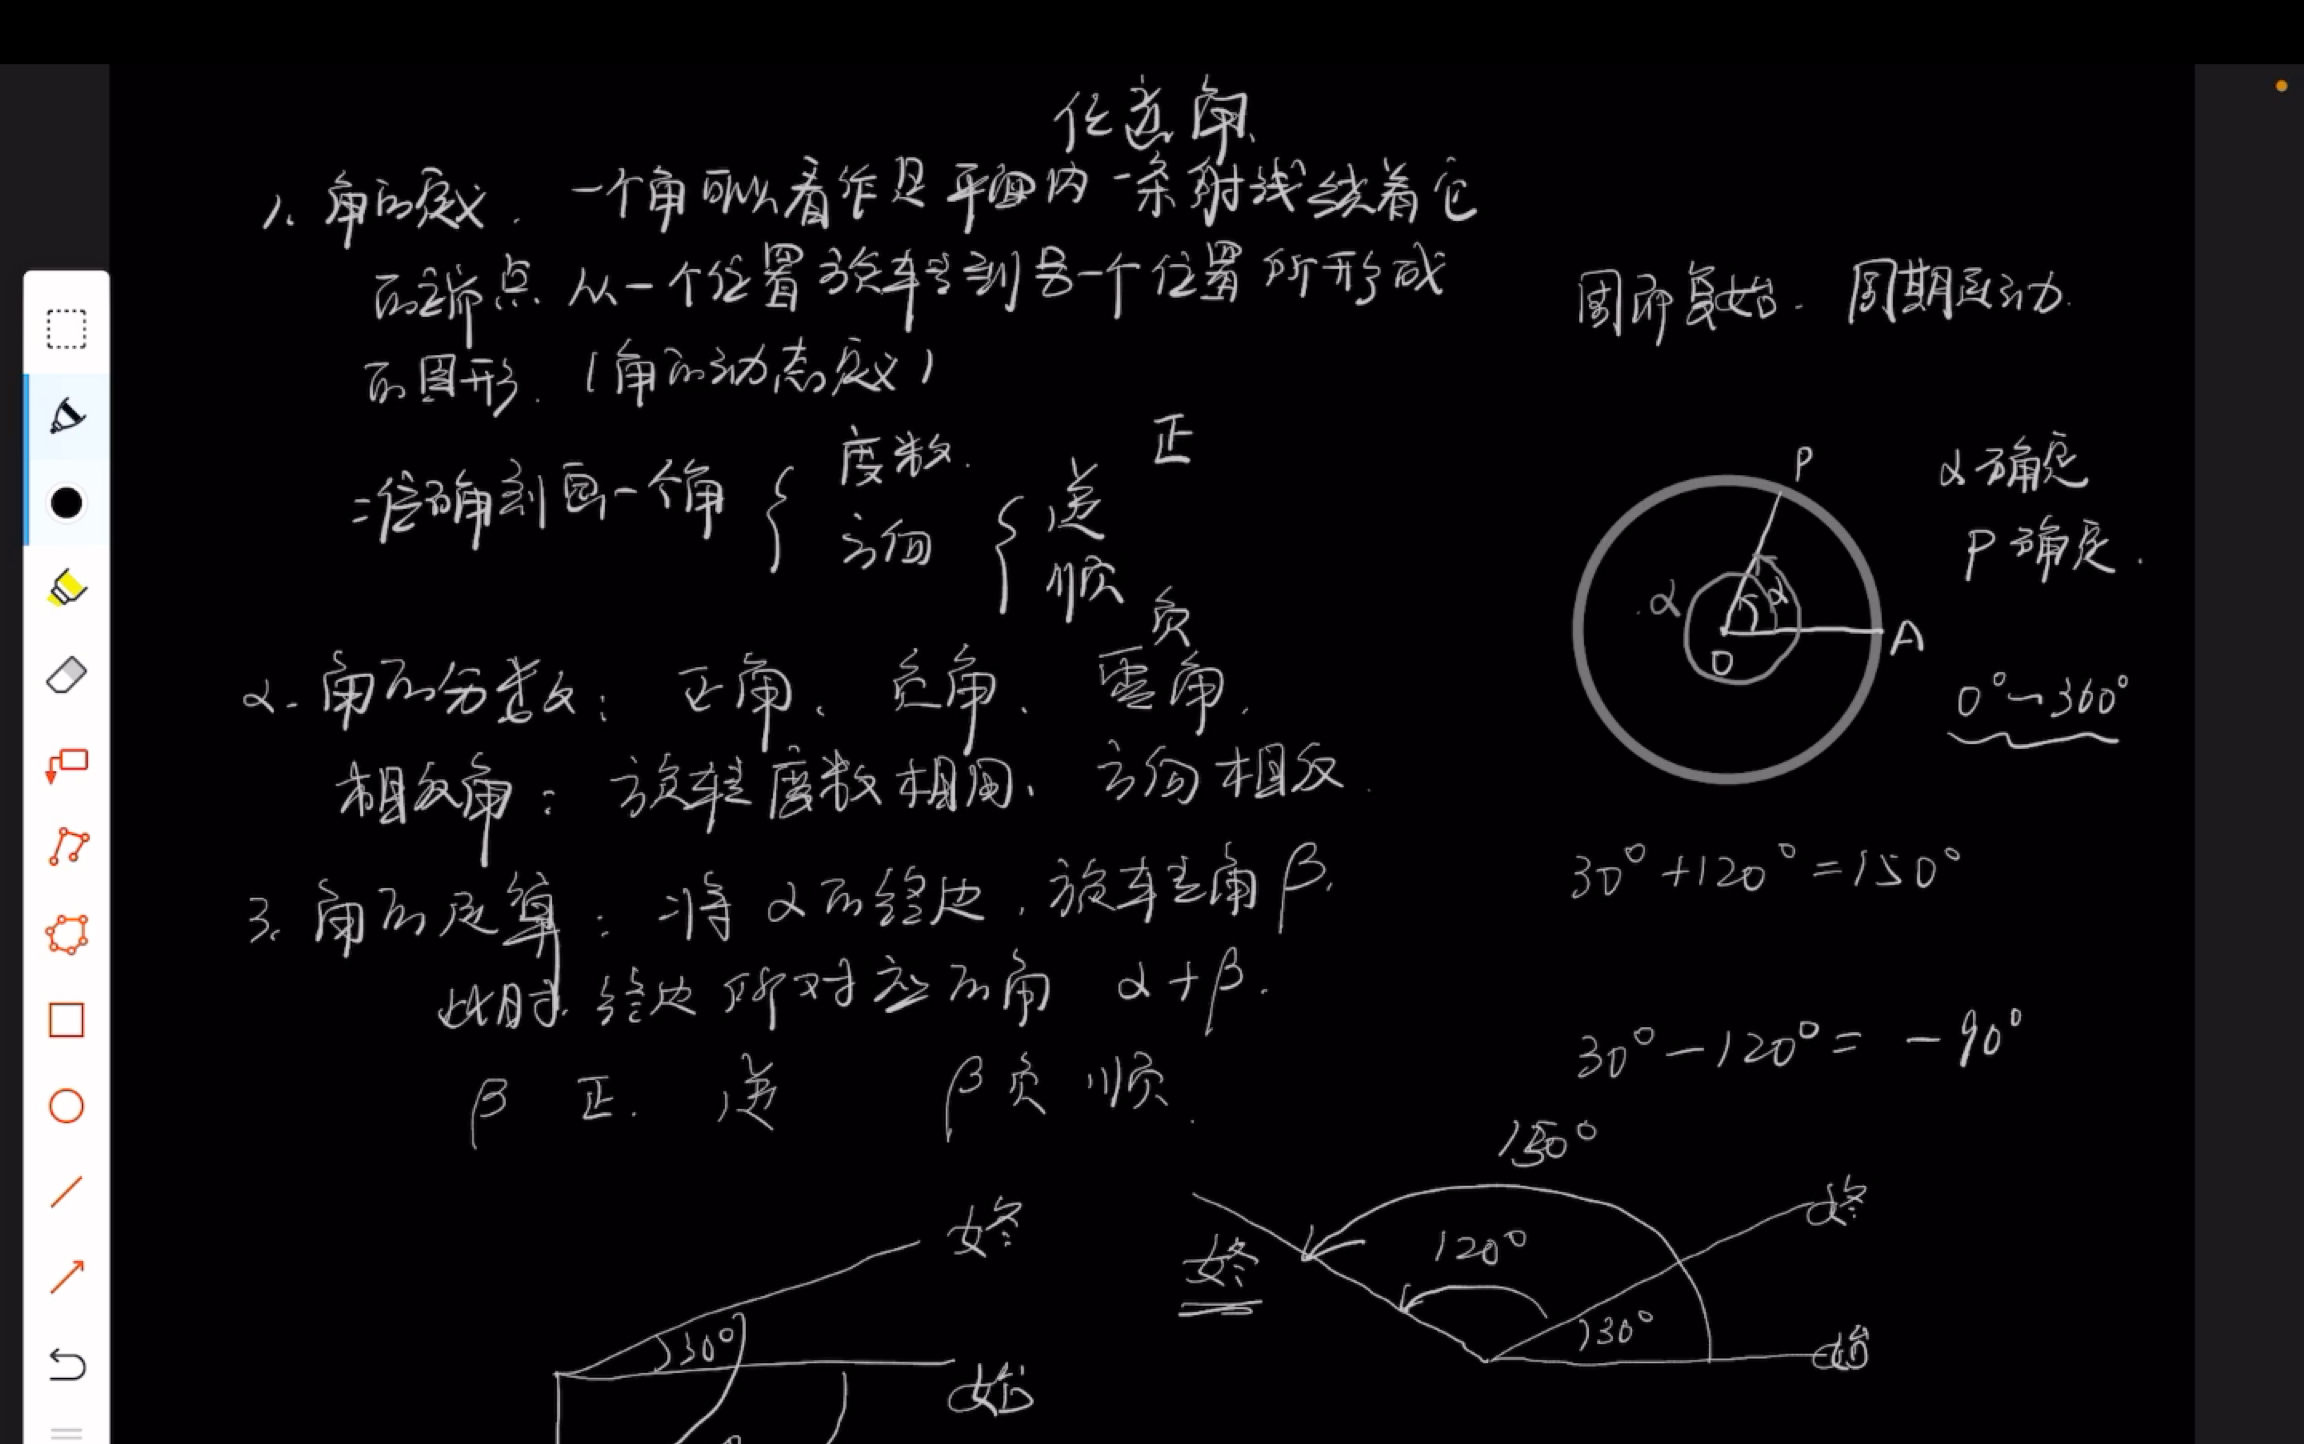 任意角
1、角的定义. 一个角可以看作是平面内一条射线绕着它
的端点 从一个位置旋转到另一个位置所形成
的图形. (角的动态定义)
准确刻画一个角 { 度数. 方向 { 逆 正
顺 负
2. 角的分类: 正角、负角、零角.
相反角: 旋转度数相同、方向相反.
3. 角的运算: 将 α 的终边, 旋转角 β.
此时, 终边所对应的角 α+β.
β 正. 逆 β 负 顺.
周而复始. 周期运动.
P
α 确定
P 确定.
α
α
O
A
0°~360°
30°+120°=150°
30°-120°= -90°
终
30°
始
150°
终
120°
终
30°
始